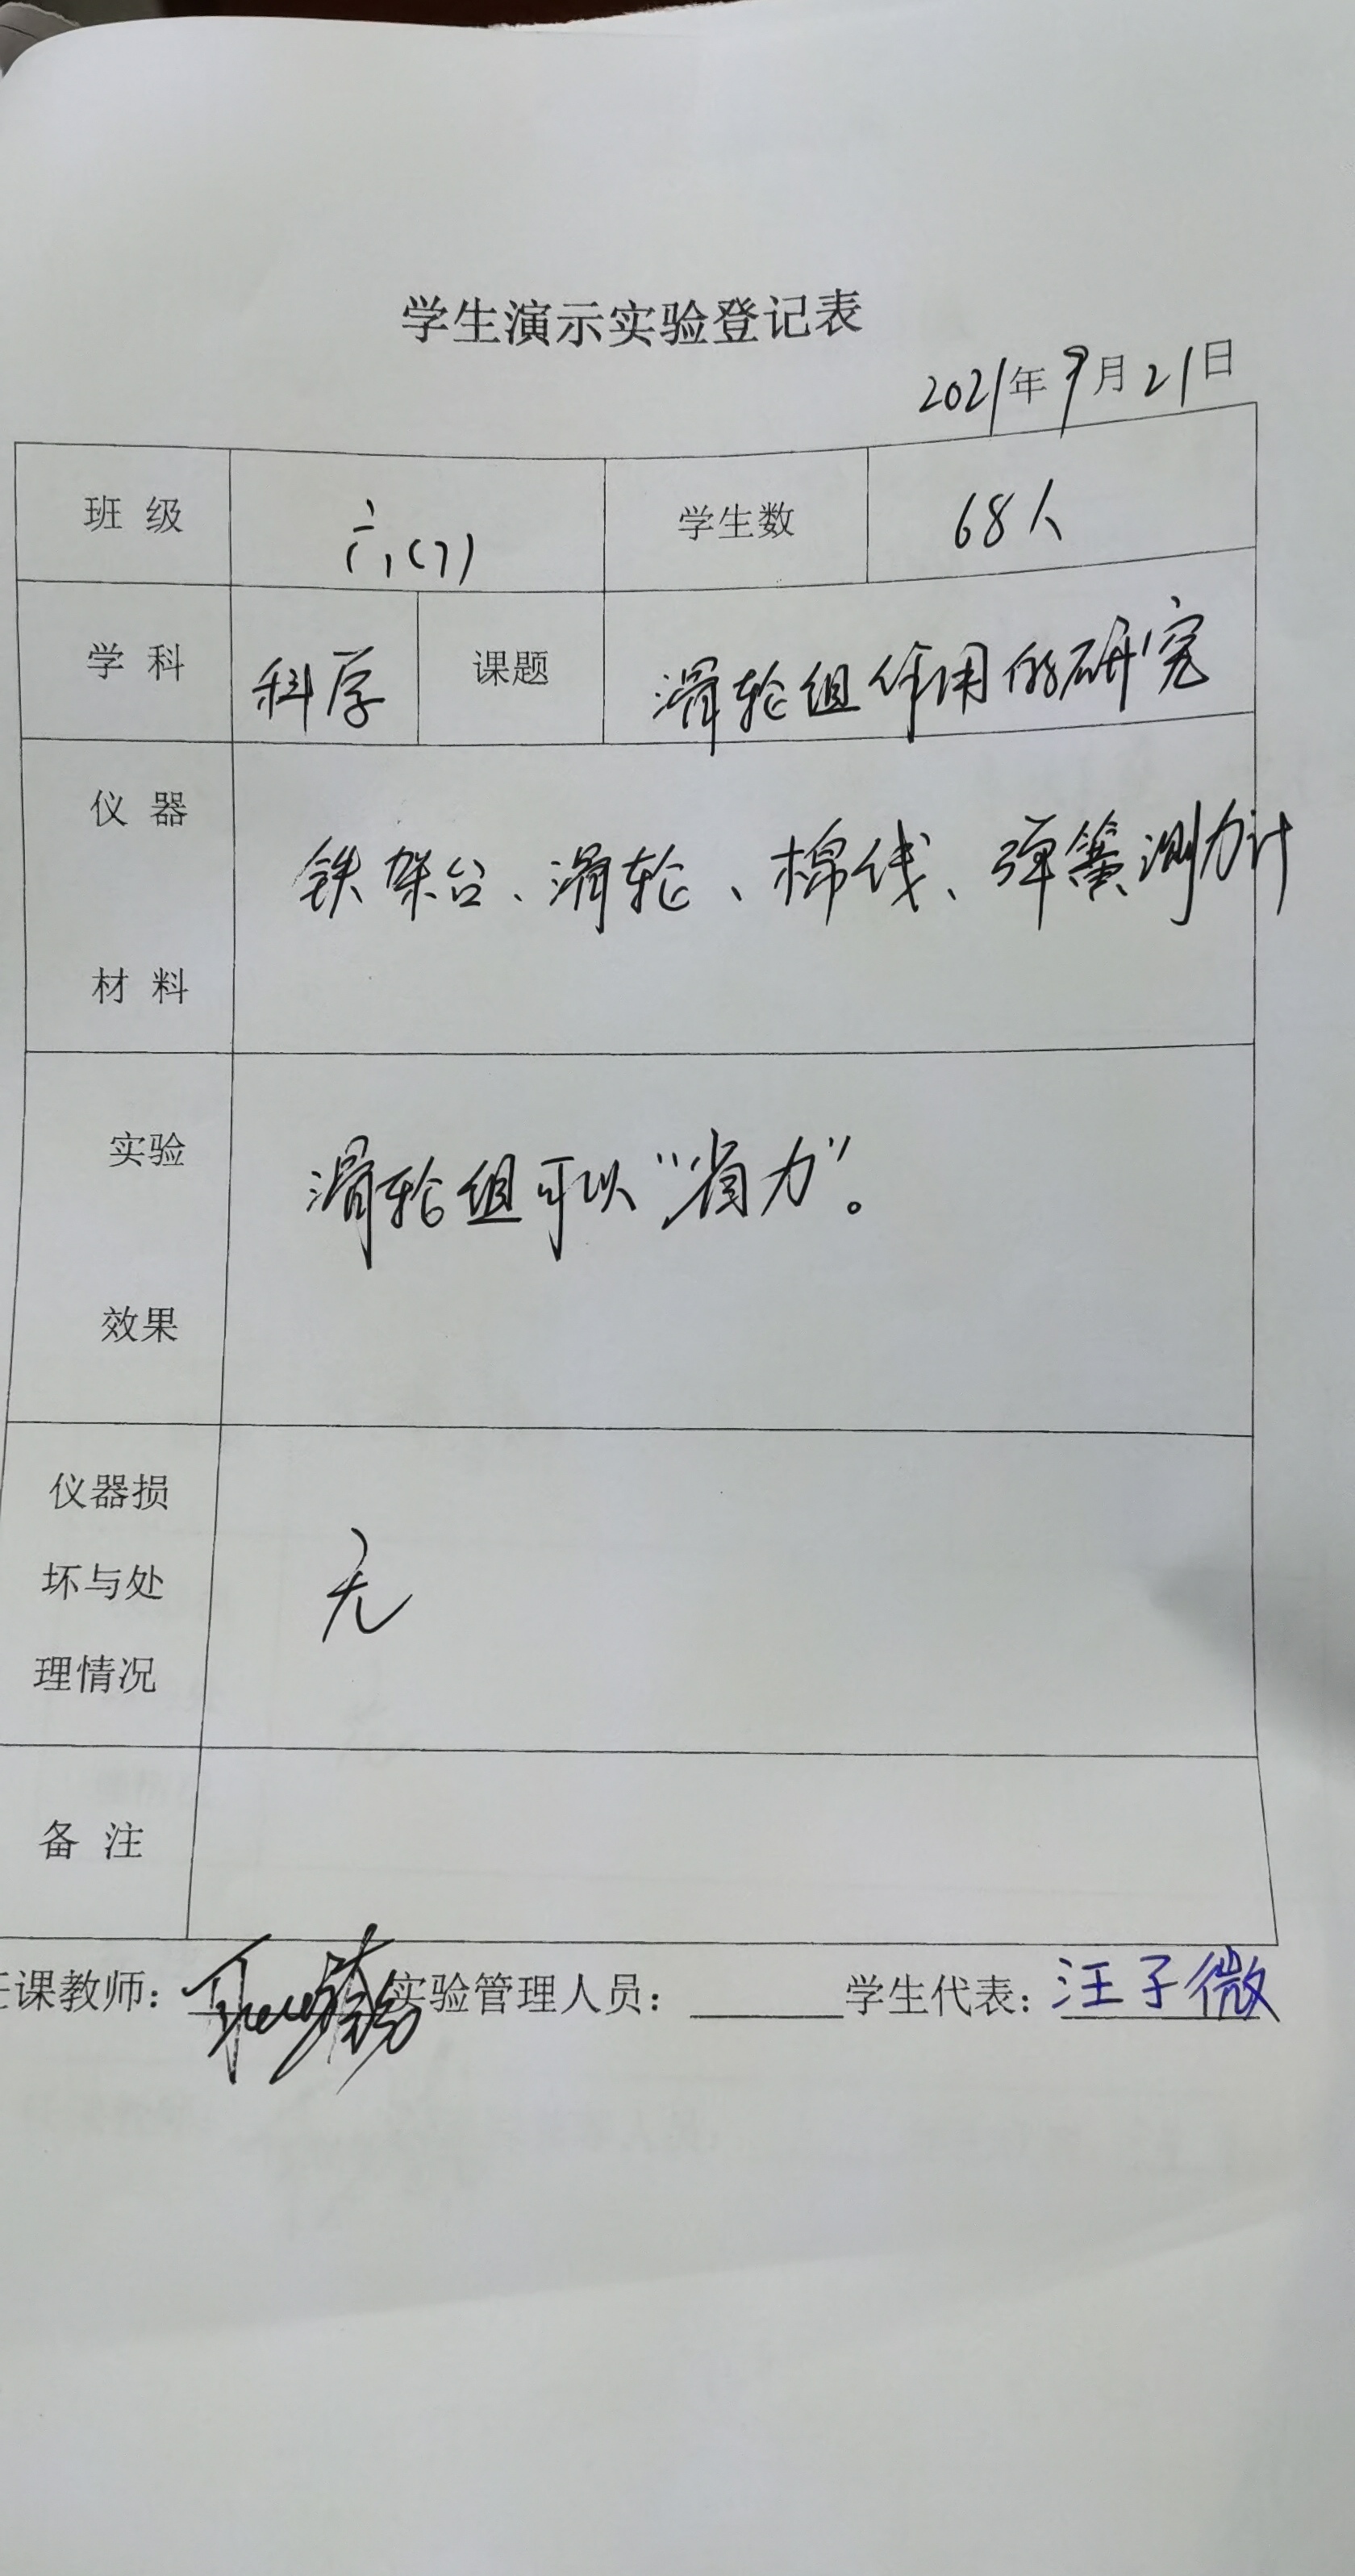 学生演示实验登记表
2021年9月21日
班 级 六(7) 学生数 68人
学 科 科学 课题 滑轮组作用的研究
仪 器
铁架台、滑轮、棉线、弹簧测力计
材 料
实验
滑轮组可以“省力”。
效果
仪器损
坏与处 无
理情况
备 注
课教师: 实验管理人员: 学生代表: 汪子微